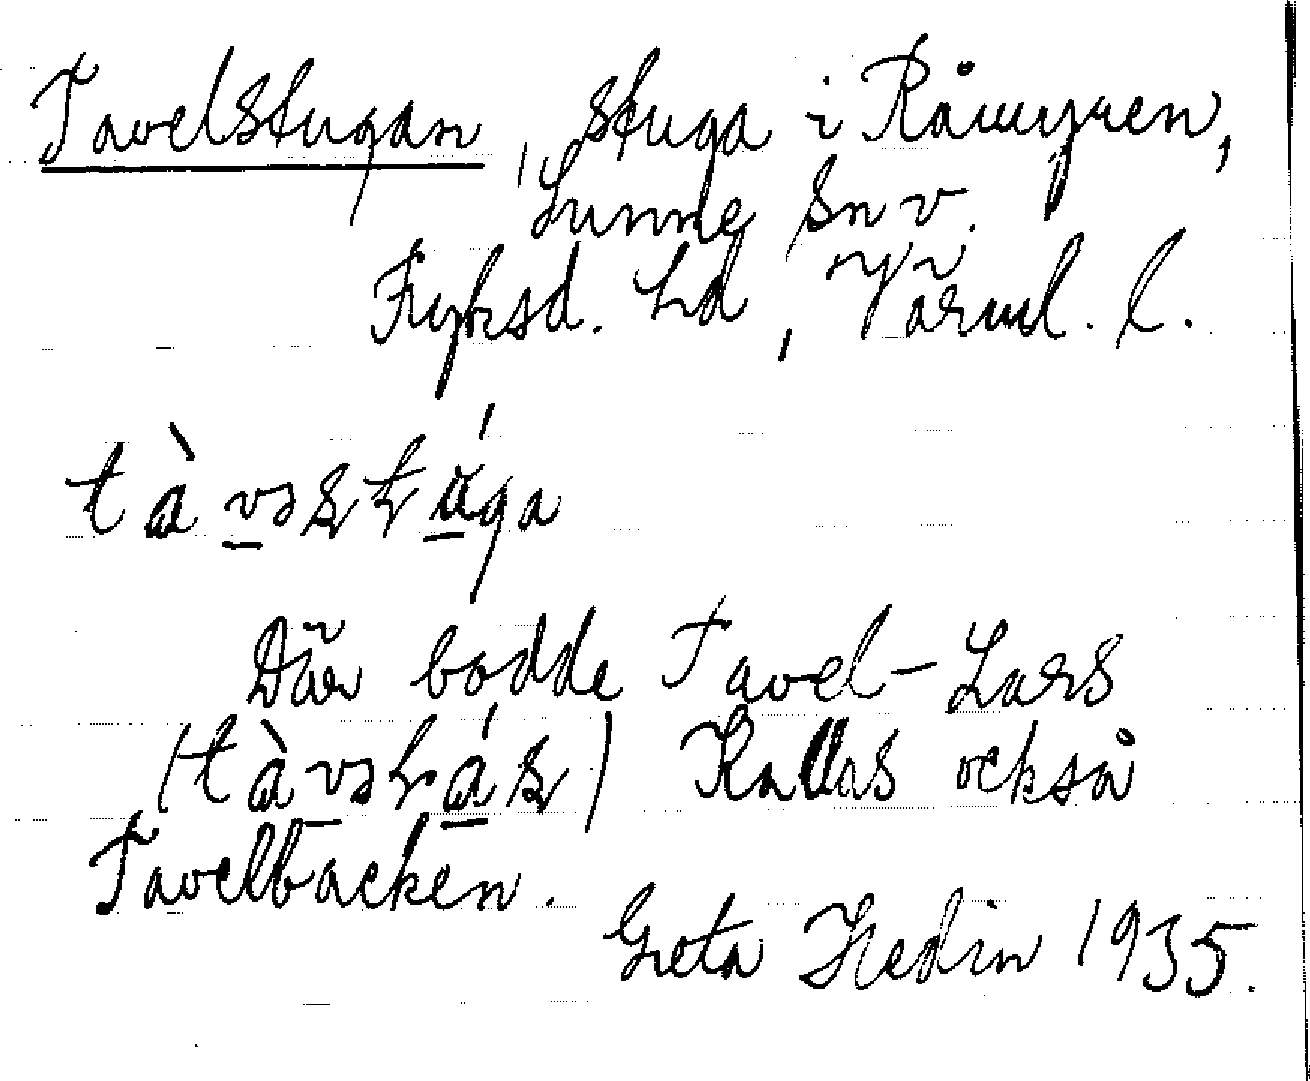 Tavelstugan, stuga i Råmyren,
Sunne sn v.
Fryksd. hd, Värml. l.
Där bodde Tavel-Lars
Kallas också
Tavelbacken.
Greta Hedin 1935.